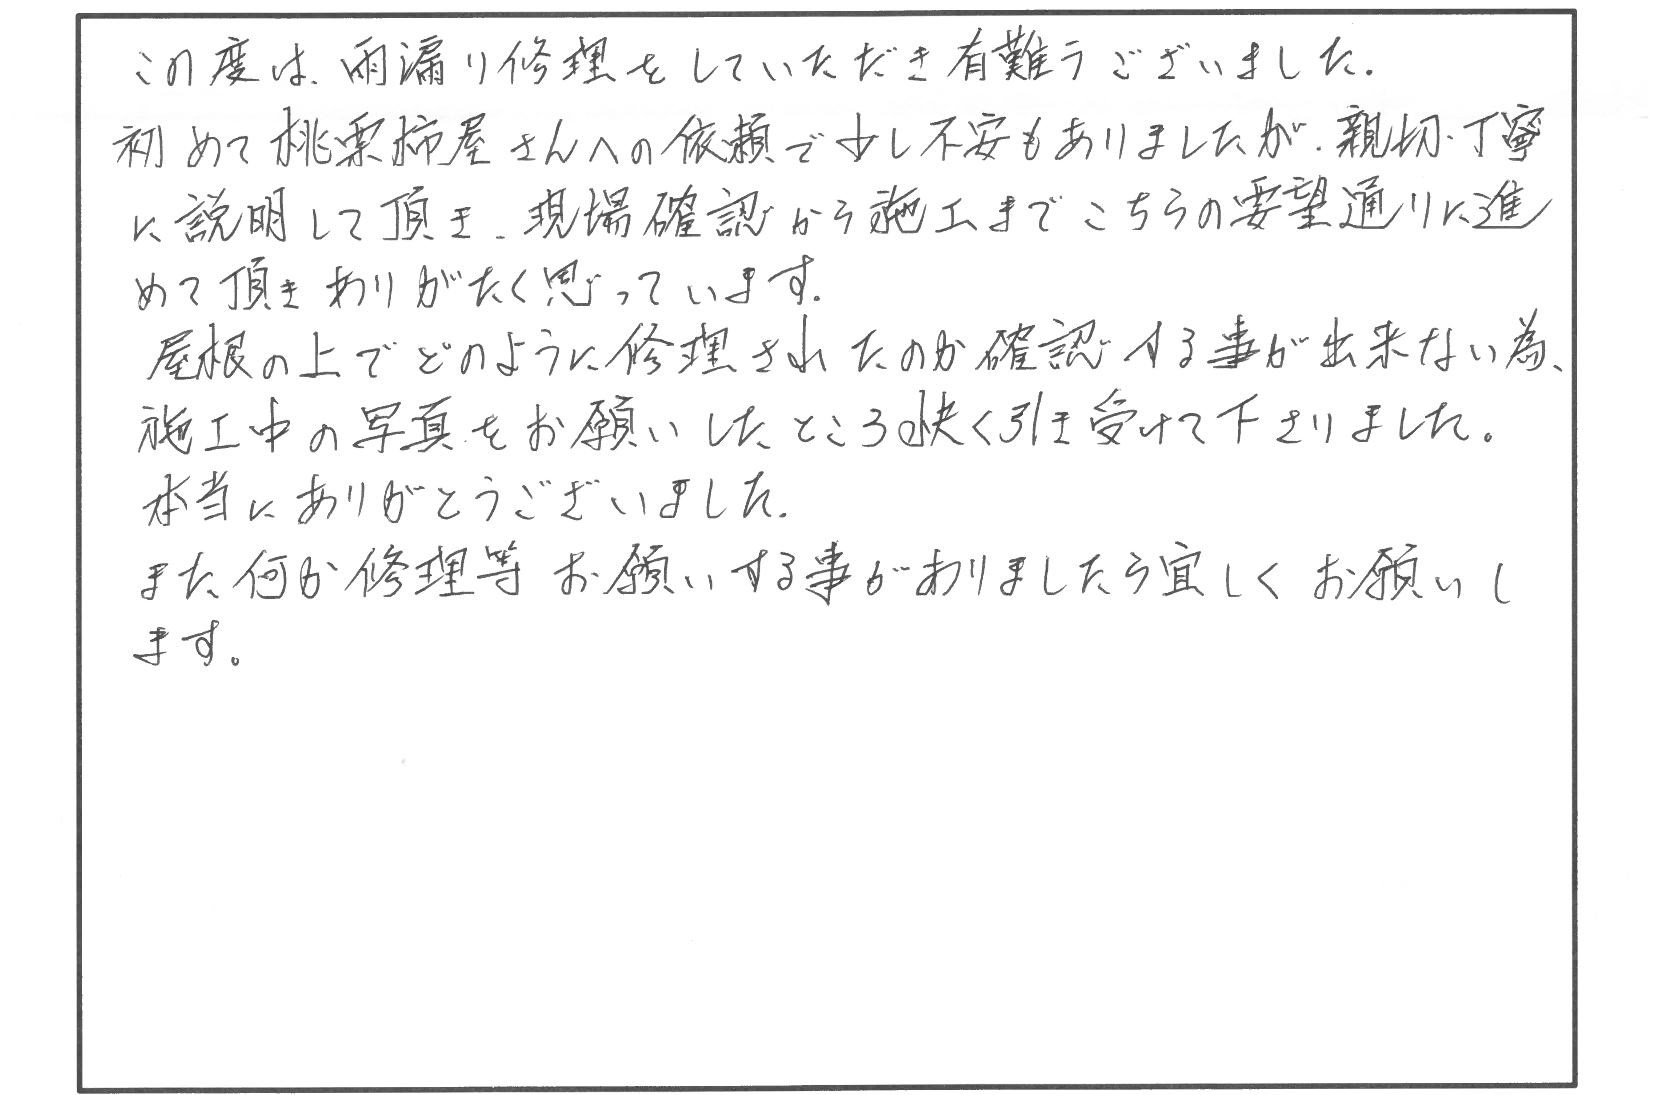 この度は、雨漏り修理をしていただき有難うございました。
初めて桃栗柿屋さんへの依頼で少し不安もありましたが、親切・丁寧
に説明して頂き、現場確認から施工までこちらの要望通りに進
めて頂きありがたく思っています。
屋根の上でどのように修理されたのか確認する事が出来ない為、
施工中の写真をお願いしたところ快く引き受けて下さりました。
本当にありがとうございました。
また何か修理等お願いする事がありましたら宜しくお願いし
ます。